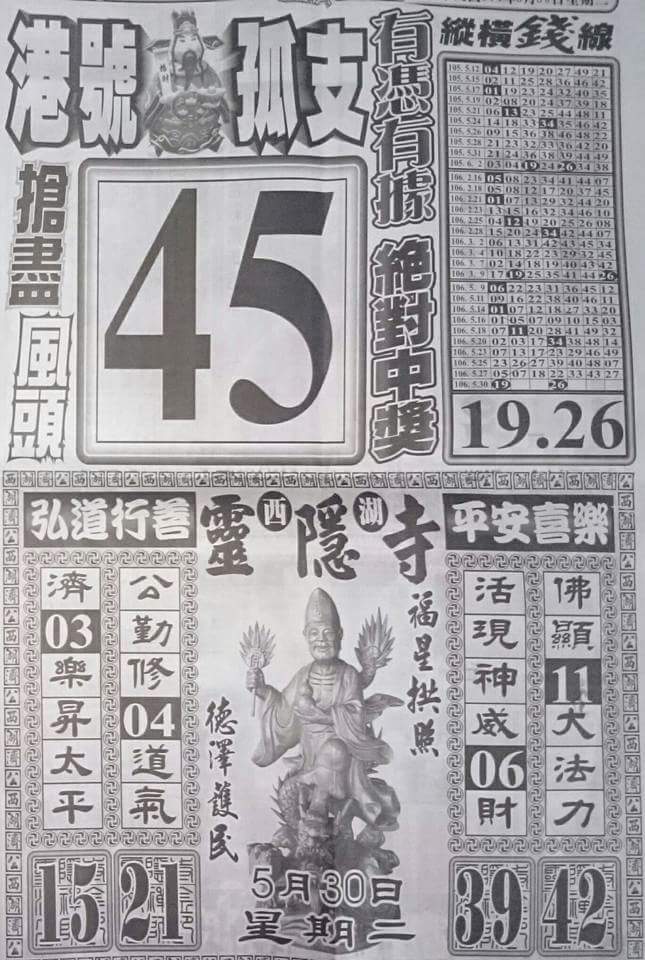 港號 孤支
搶盡風頭
45
有憑有據 絕對中獎
縱橫錢線
105. 5.12 04 12 19 20 27 49 21
105. 5.15 02 11 25 28 36 28 32
105. 5.17 01 19 23 24 32 49 35
105. 5.19 02 08 20 24 37 39 18
06 13 23 25 44 48 11
105. 5.24 14 31 33 34 35 46 42
105. 5.26 09 15 36 38 46 48 22
105. 5.28 21 23 32 33 36 42 20
105. 5.31 21 24 36 38 39 44 49
105. 6. 2 03 04 19 24 26 34 38
106. 2.16 05 08 23 34 41 44 07
106. 2.18 05 08 12 17 20 37 45
106. 2.21 01 07 13 29 32 44 20
106. 2.23 13 15 16 32 34 46 10
106. 2.25 04 12 19 20 25 26 08
106. 2.28 15 20 24 34 42 44 07
106. 3. 2 06 13 31 42 43 45 34
106. 3. 4 10 18 22 23 29 32 45
106. 3. 7 02 14 18 19 40 43 42
106. 3. 9 17 19 25 35 41 44 26
106. 5. 9 06 22 23 31 36 45 12
106. 5.11 09 16 22 38 40 46 11
106. 5.14 01 07 12 18 27 33 20
106. 5.16 01 05 07 09 10 15 03
106. 5.18 07 11 20 28 41 49 32
106. 5.20 02 03 17 34 38 48 14
106. 5.23 07 13 17 23 29 46 49
106. 5.25 23 26 27 39 40 48 07
106. 5.27 05 07 18 22 33 43 27
106. 5.30 19 26
19.26
弘道行善
西湖
靈隱寺
平安喜樂
濟03樂昇太平
公勤修04道氣
福星拱照
德澤護民
活現神威06財
佛顯11大法力
15 21
5月30日
星期二
39 42